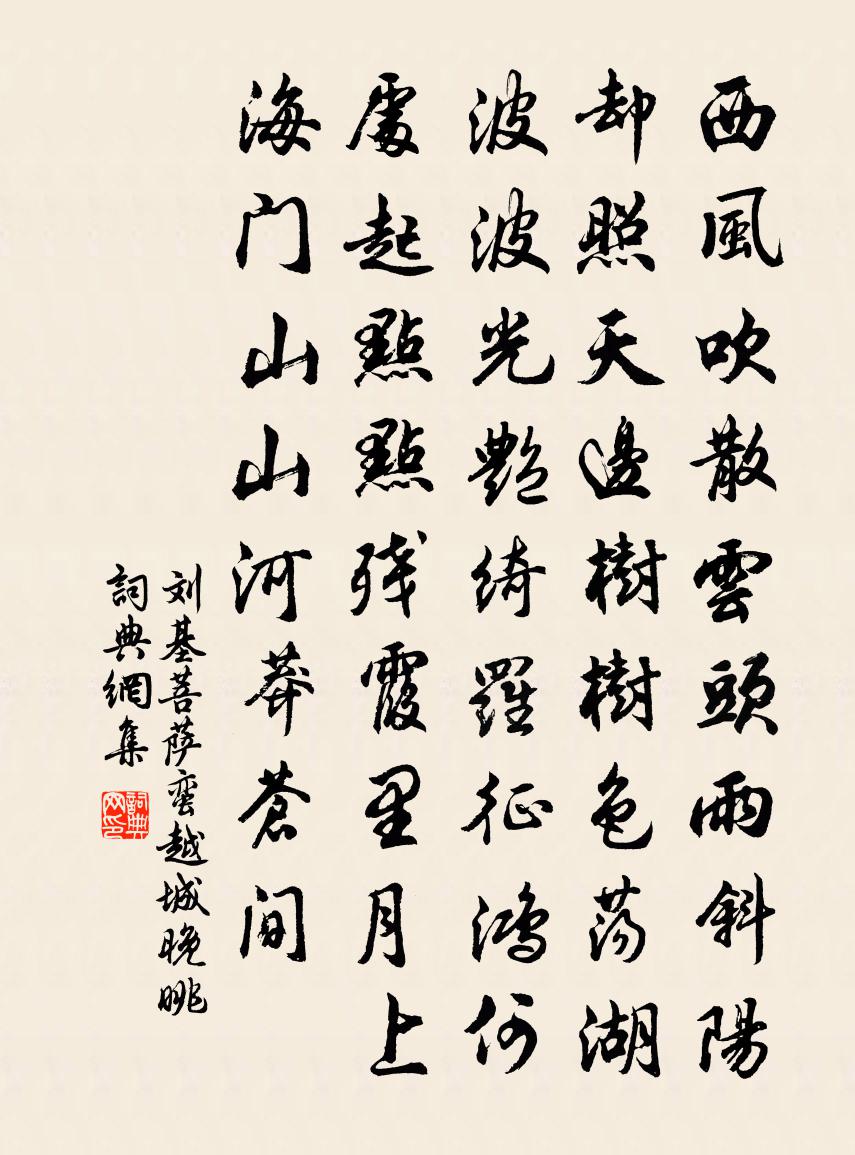 西風吹散雲頭雨斜陽
却照天邊樹樹色蕩湖
波波光艷綺羅征鴻何
處起點點残霞里月上
海门山山河莽蒼间
刘基菩萨蛮越城晚眺
詞典網集
詞典网印